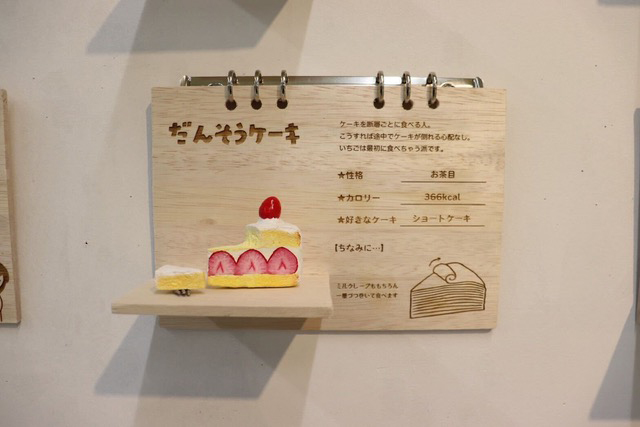 だんそうケーキ
ケーキを断層ごとに食べる人。
こうすれば途中でケーキが倒れる心配なし。
いちごは最初に食べちゃう派です。
★性格 お茶目
★カロリー 366kcal
★好きなケーキ ショートケーキ
【ちなみに…】
ミルクレープももちろん
一層づつ巻いて食べます